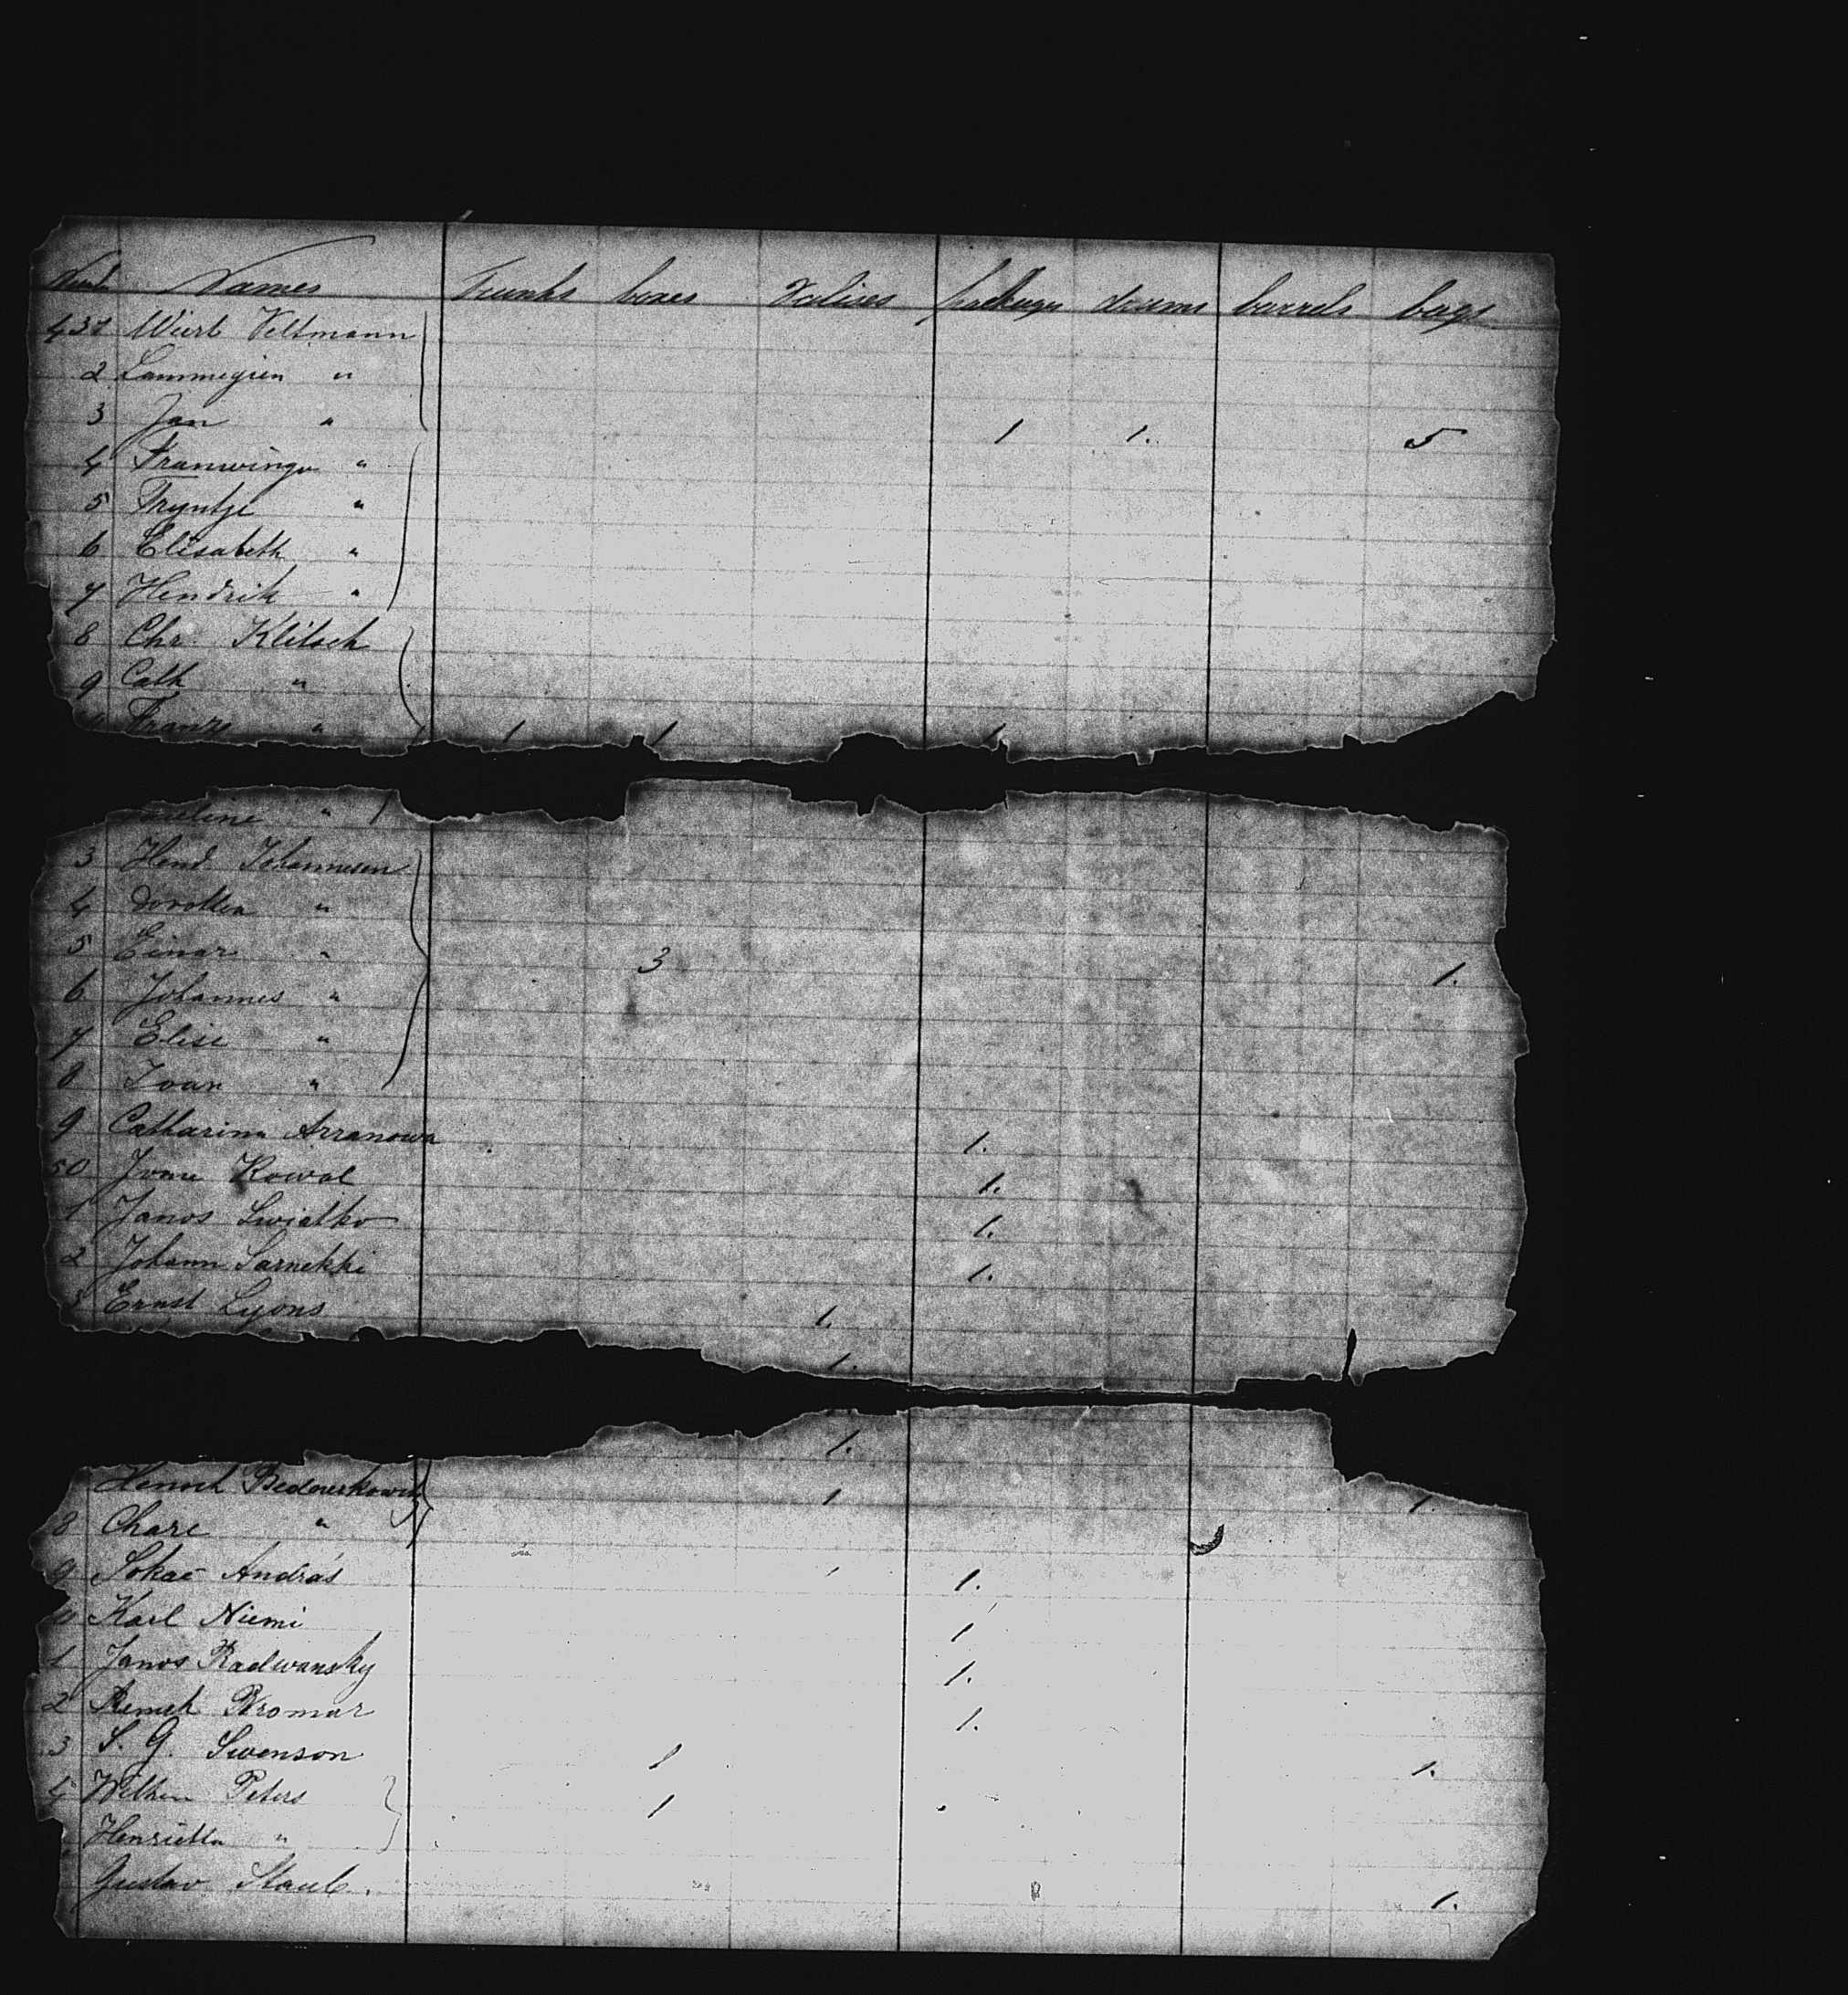 Names Trunks boxes Valises packages drums barrels bags
431 Wiert Veltmann
2 Lammegien "
3 Jan " 1 1. 5
4 "
5 Tryntje "
6 Elisabeth "
7 Hendrik "
8 Chr. Klitsch
9 Cath "
Franz " 1 1 1
"
3 Hend Johannesen
4 Dorothea "
5 Einar " 3 1.
6 Johannes "
7 Elise "
8 Ivan "
9 Catharina Arranowa 1.
50 Kowal 1.
1 Janos Swiatko 1.
2 Johann Sarnekki 1.
Ernst Lyons 1.
1.
1.
Henoch 1 1.
8 Chare "
9 Sokac András 1.
Karl Niemi 1
1 Janos Radwansky 1.
2 1.
3 S. G. Swenson 1 1.
4 Peters 1
Henrietta "
Gustav Staub. 1.